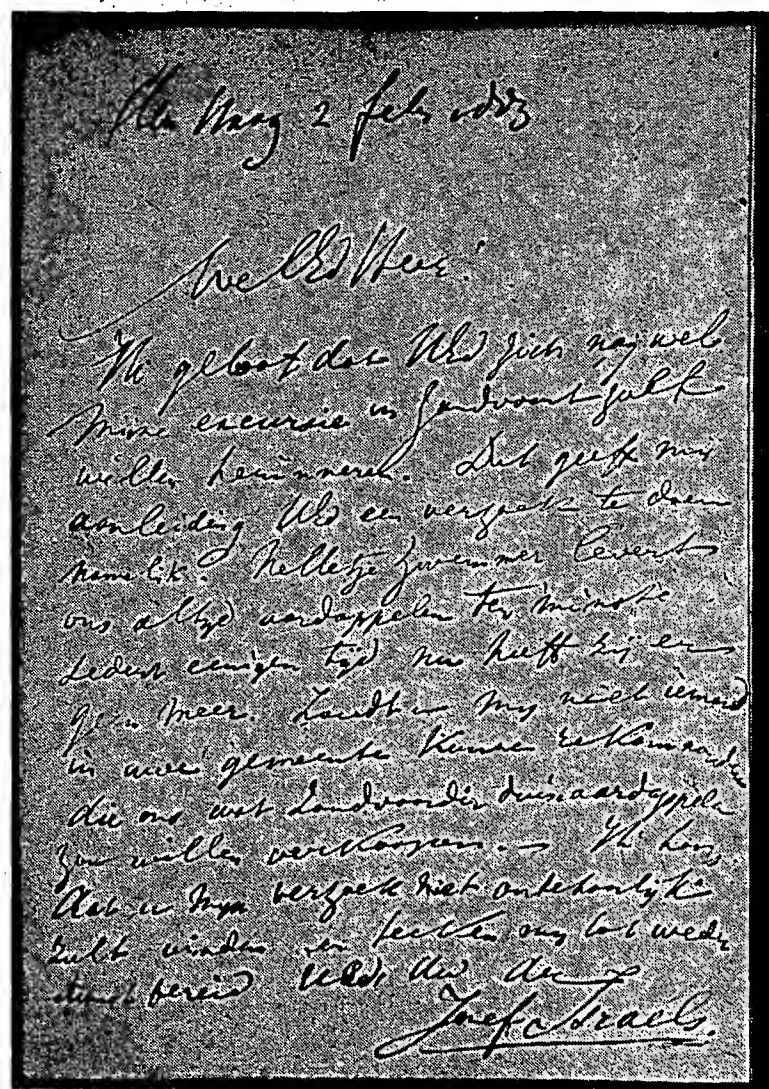 Den Haag 2 feb
WelEd Heer!
Ik geloof dat UEd zich nog wel
mijne excursie in Zandvoort zult
willen herinneren. Dit geeft mij
aanleiding UEd een verzoek te doen
namelik. Nelletje Zwemmer levert
ons altyd aardappelen ten minste
sedert eenigen tyd nu heeft zij er
geen meer. Zoudt u my niet iemand
in uwe gemeente kunnen rekommanderen
die ons wat Zandvoorder duinaardappelen
zou willen verkoopen. — Ik hoop
dat u myn verzoek niet onbehoorlyk
zult vinden en my tot weder
dienst bereid UEd dw
Jozef Israels.